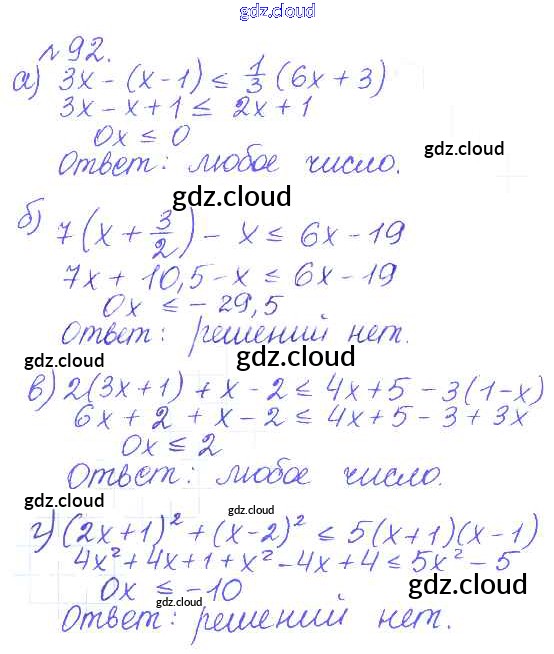 gdz.cloud
№92.
а) 3x - (x - 1) ≤ 1/3 (6x + 3)
3x - x + 1 ≤ 2x + 1
0x ≤ 0
gdz.cloud
Ответ: любое число.
gdz.cloud
б) 7(x + 3/2) - x ≤ 6x - 19
7x + 10,5 - x ≤ 6x - 19
0x ≤ - 29,5
Ответ: решений нет.
gdz.cloud gdz.cloud
в) 2(3x + 1) + x - 2 ≤ 4x + 5 - 3(1 - x)
6x + 2 + x - 2 ≤ 4x + 5 - 3 + 3x
0x ≤ 2
Ответ: любое число.
gdz.cloud gdz.cloud
г) (2x + 1)² + (x - 2)² ≤ 5(x + 1)(x - 1)
4x² + 4x + 1 + x² - 4x + 4 ≤ 5x² - 5
0x ≤ -10
gdz.cloud gdz.cloud
Ответ: решений нет.